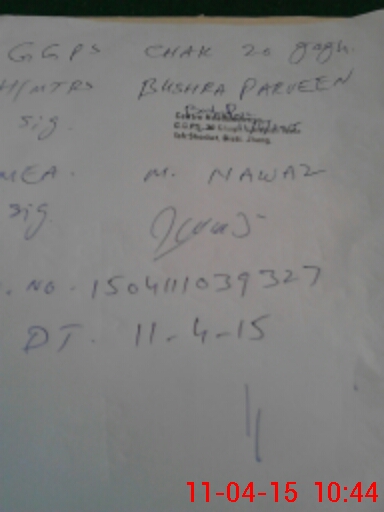 GGPS CHAK 20 gagh.
H/MTRS BUSHRA PARVEEN
sig.
MEA. M. NAWAZ
sig.
. NO. 150411039327
DT. 11-4-15
11-04-15 10:44